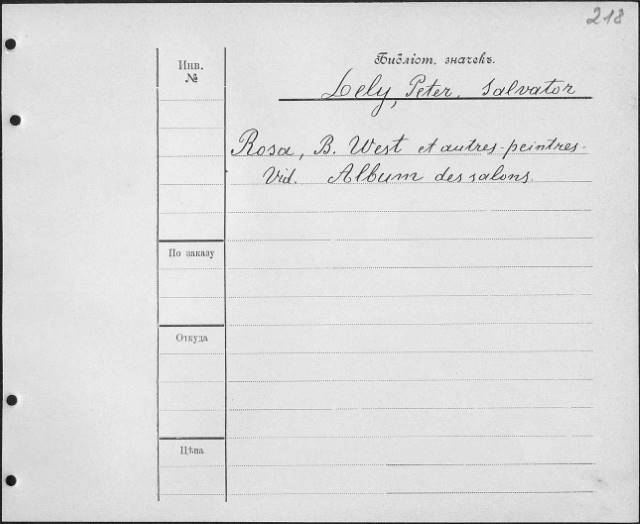 218
Инв.
№
Библіот. значекъ.
Lely, Peter. Salvator
Rosa, B. West et autres-peintres.
Vid. Album des salons.
По заказу
Откуда
Цѣна